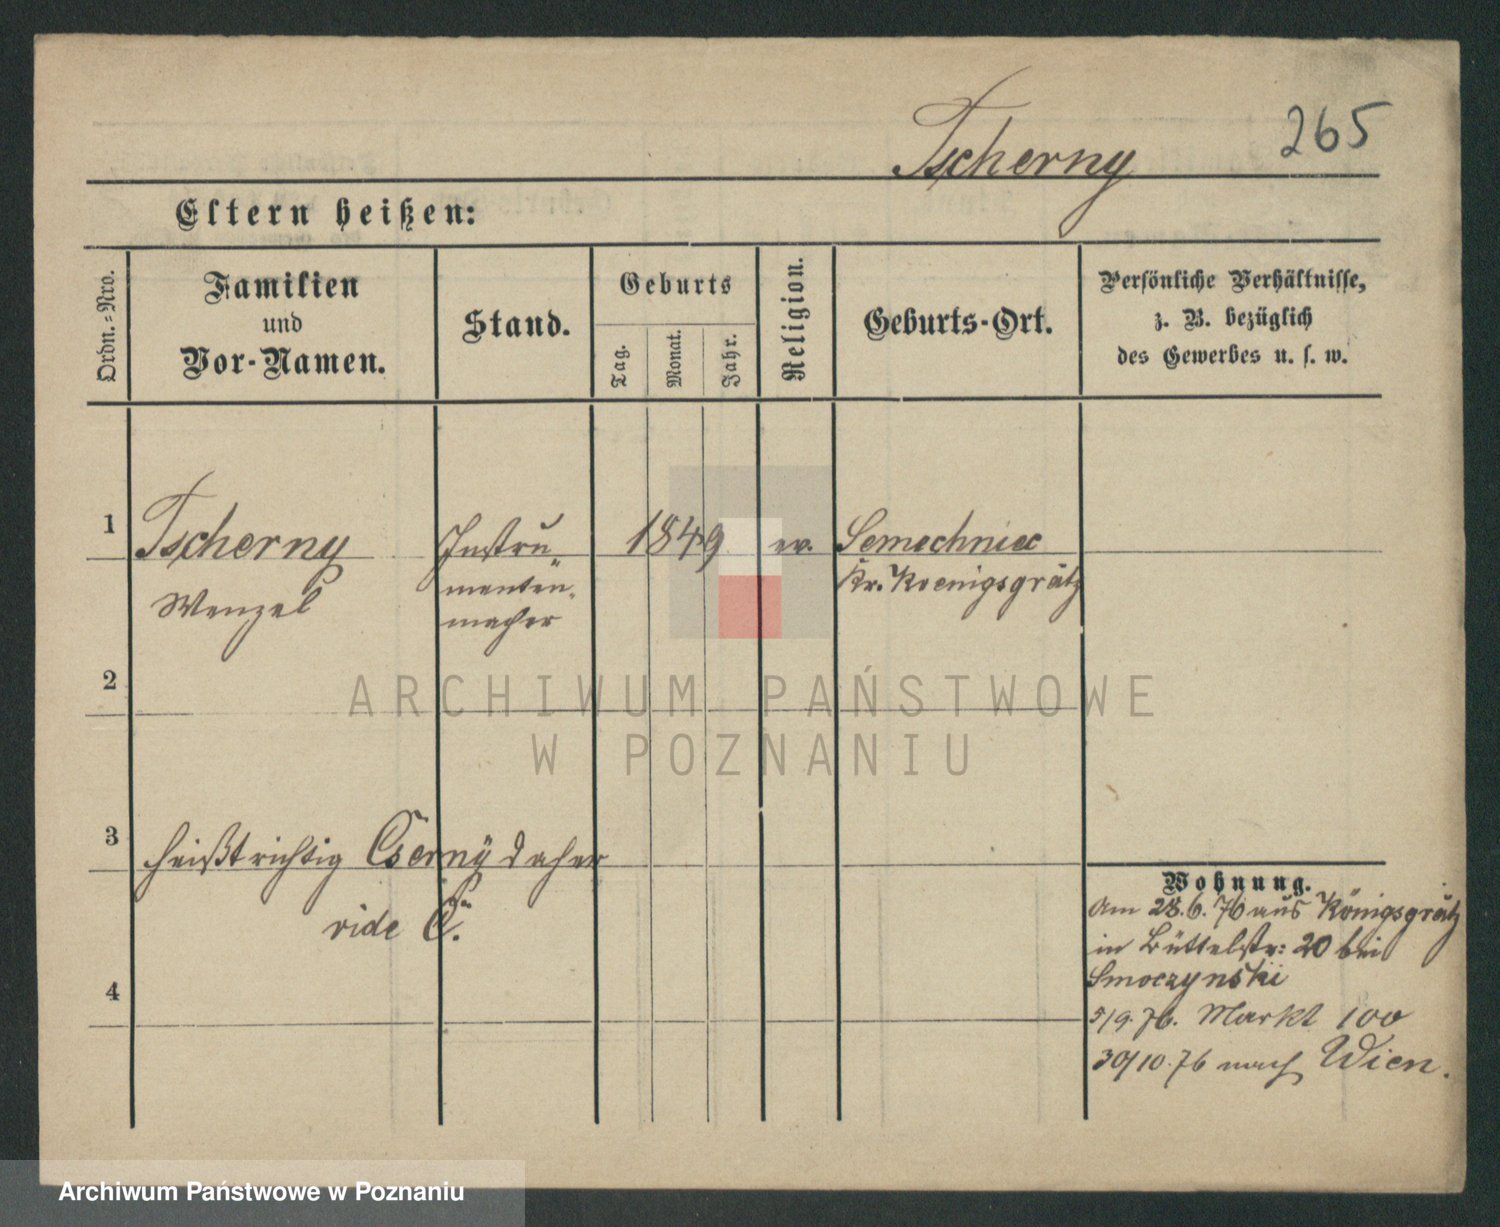 Tscherny
265
Eltern heißen:
Ordn.-Nro.
Familien
und
Vor-Namen.
Stand.
Geburts
Tag.
Monat.
Jahr.
Religion.
Geburts-Ort.
Persönliche Verhältnisse,
z. B. bezüglich
des Gewerbes u. s. w.
1
Tscherny
Wenzel
Instru-
menten-
macher
1849
ev.
Semechnice
Kr. Koenigsgrätz
2
3
heißt richtig Cserny daher
vide C.
4
Wohnung.
Am 28.6.76 aus Königsgrätz
in Büttelstr: 20 bei
Smoczynski
5/9.76. Markt 100
30/10.76 nach Wien.
ARCHIWUM PAŃSTWOWE
W POZNANIU
Archiwum Państwowe w Poznaniu